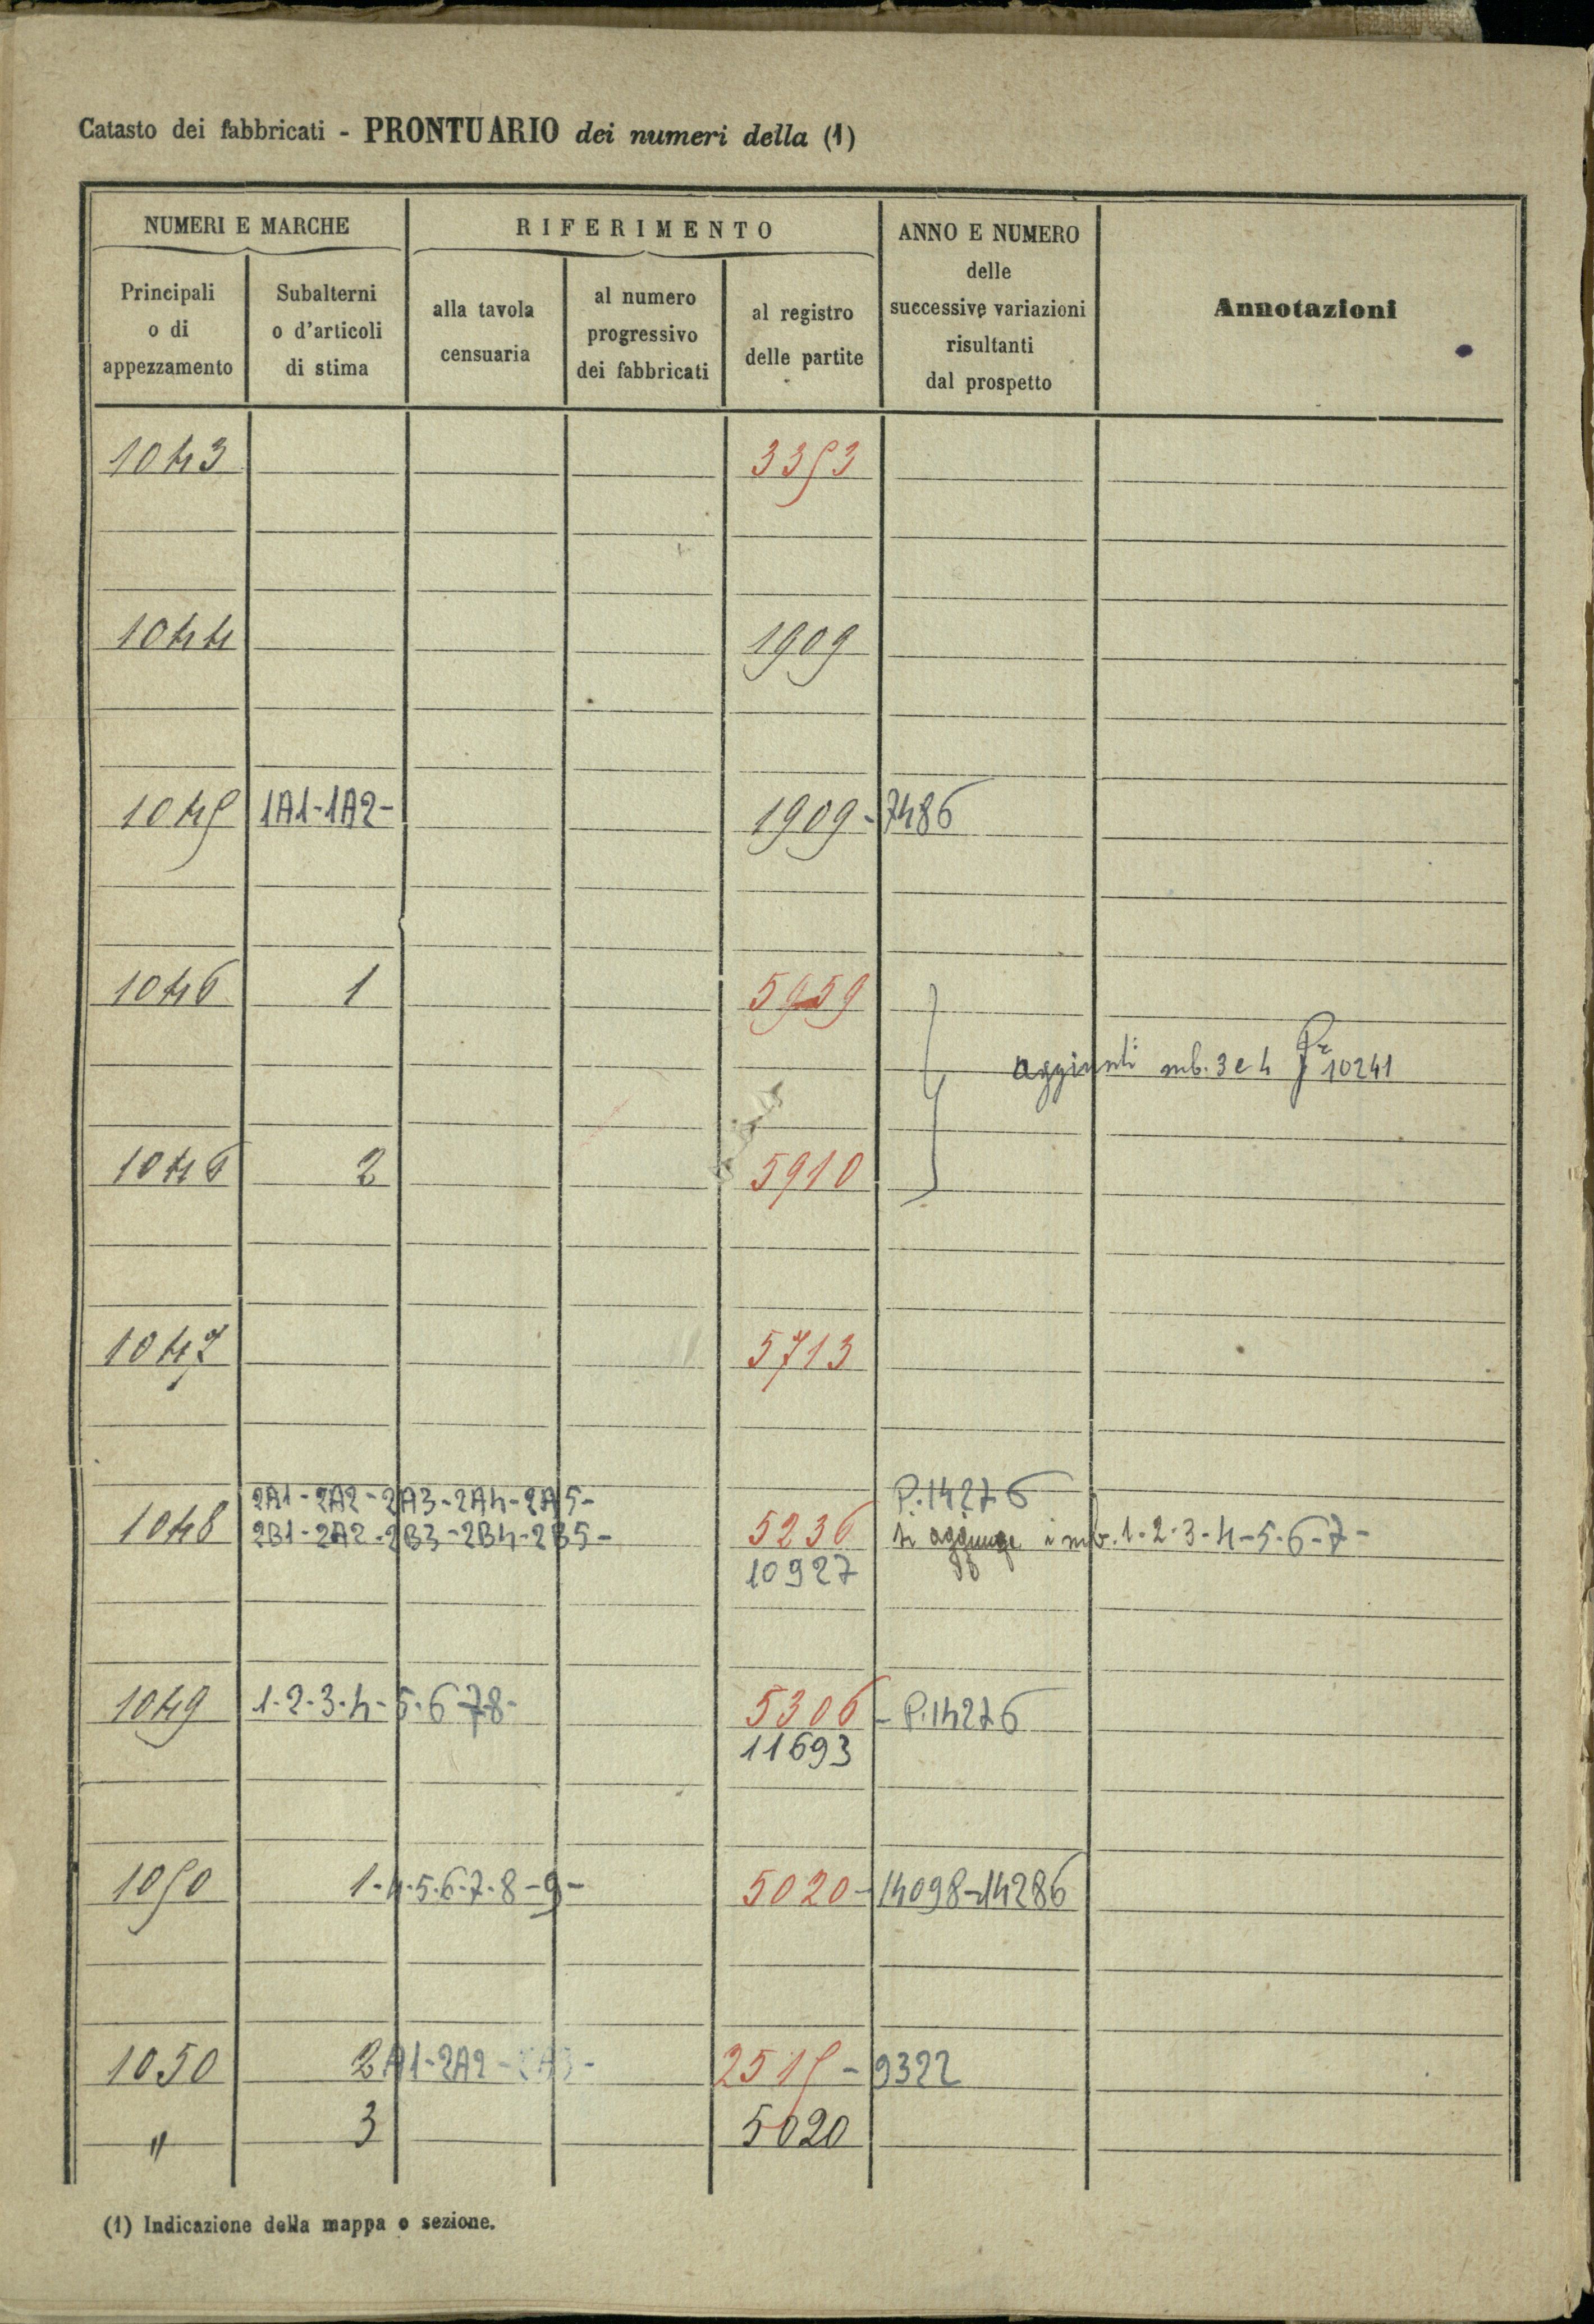 Catasto dei fabbricati - PRONTUARIO dei numeri della (1)
NUMERI E MARCHE
RIFERIMENTO
ANNO E NUMERO
delle
successive variazioni
risultanti
dal prospetto
Annotazioni
Principali
o di
appezzamento
Subalterni
o d'articoli
di stima
alla tavola
censuaria
al numero
progressivo
dei fabbricati
al registro
delle partite
1043 3353
1044 1909
1045 1A1-1A2- 1909-7486
1046 1 5959
aggiunti sub. 3 e 4 10241
1046 2 5910
1047 5713
2A1-2A2-2A3-2A4-2A5- P.14276
1048 2B1-2A2-2B3-2B4-2B5- 5236 si aggiunge i sub. 1-2-3-4-5-6-7-
10927
1049 1-2-3-4-5-6-7-8- 5306 - P.14276
11693
1050 1-4-5-6-7-8-9- 5020-14098-14286
1050 2A1-2A2-2A3- 2515-9322
" 3 5020
(1) Indicazione della mappa o sezione.